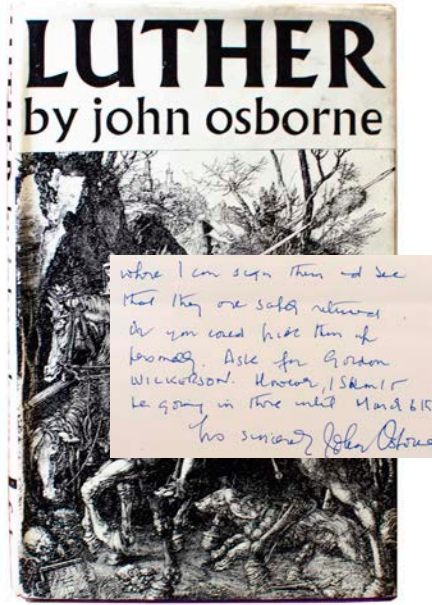 LUTHER
by john osborne
where I can sign them and see
that they are safely returned.
Or you could pick them up
personally. Ask for Gordon
WILKERSON. However, I shan't
be going in there until March 6
sincerely John Osborne